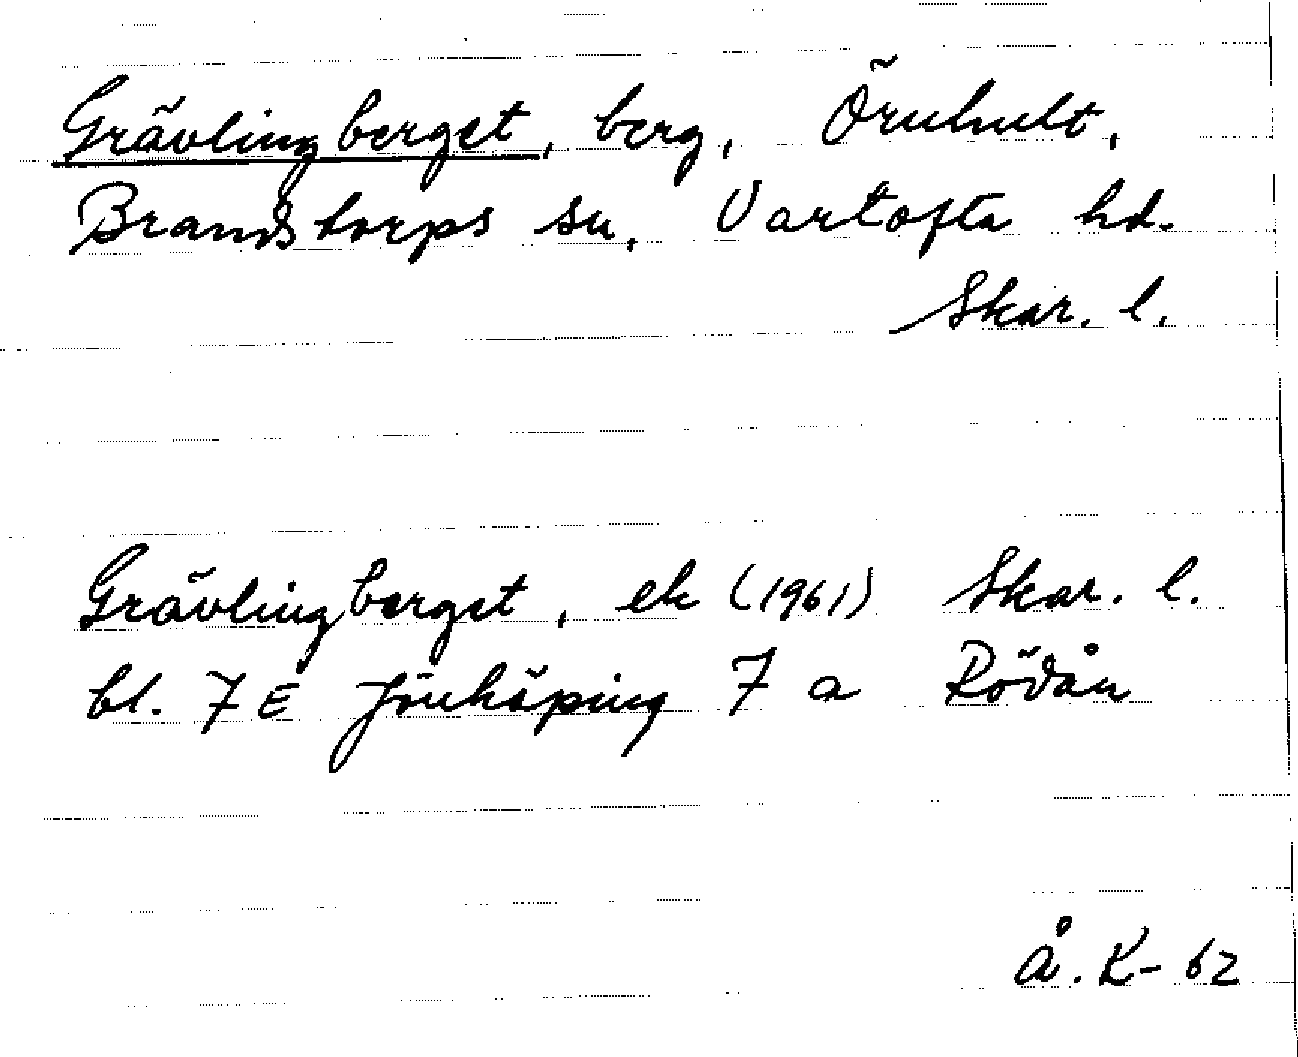 Grävlingberget, berg, Örnhult,
Brandstorps sn, Vartofta hd.
Skar. l.
Grävlingberget, ek (1961) Skar. l.
bl. 7 E Jönköping 7 a Rödån
Å. K-62